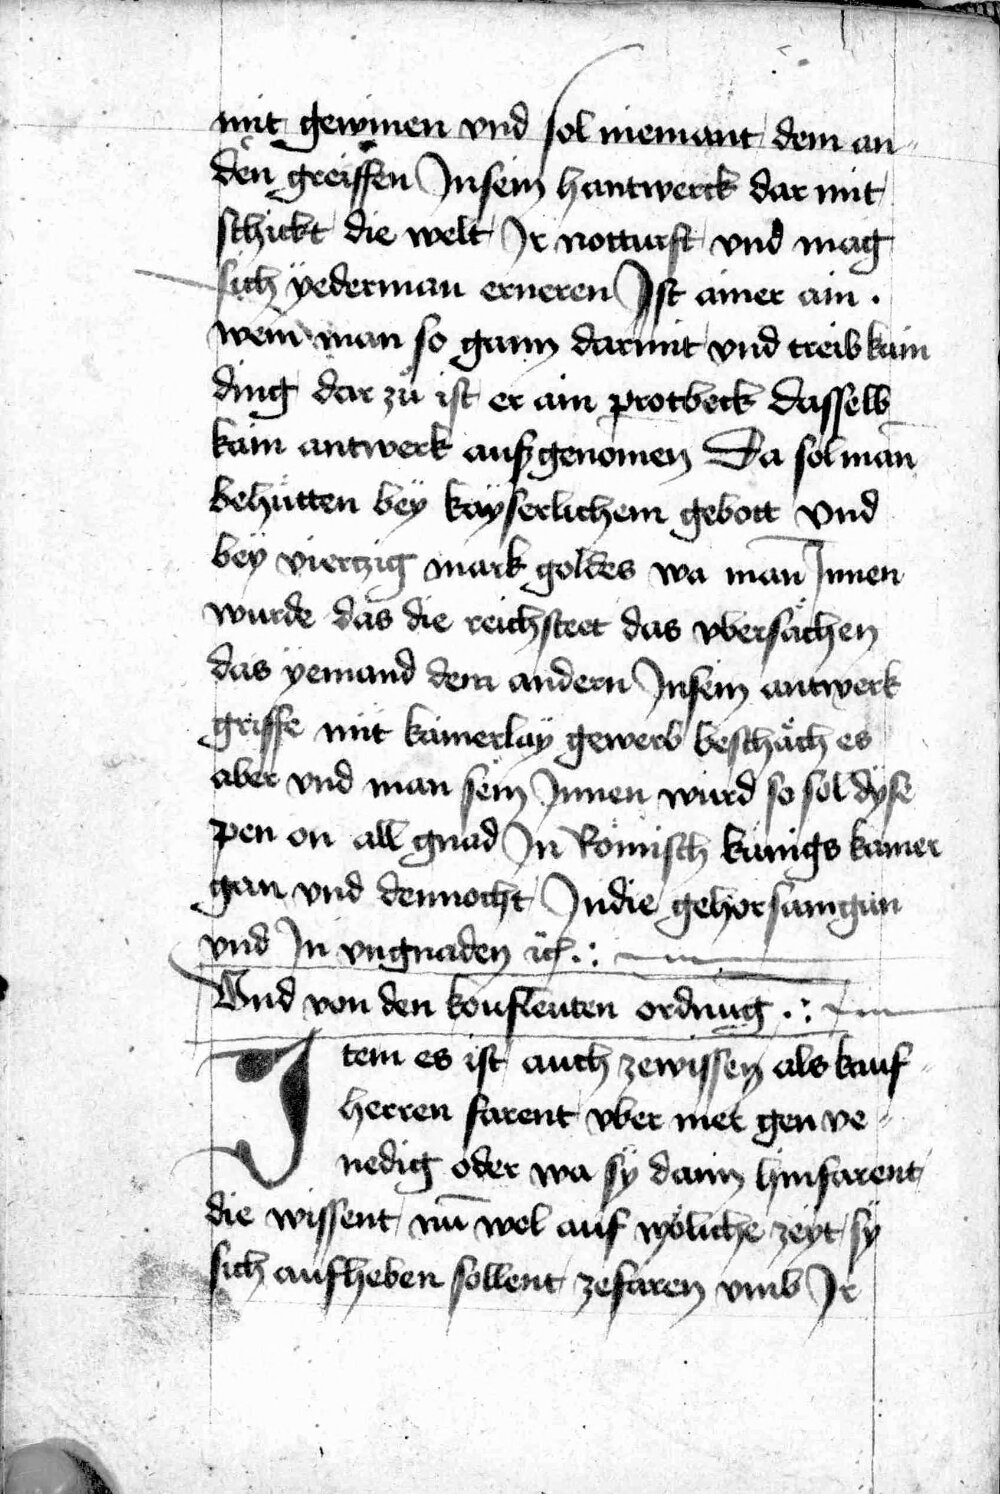 mit gewinen vnd sol niemant dem an-
den greiffen Jn sein hantwerck dar mit
schickt die welt Jr notturft vnd mag
sich yederman erneren Jst ainer ain .
wein man so gann darmit vnd treib kain
ding dar zů ist er ain protbeck dasselb
kain antwerk aufzgenomen Da sol man
behütten bey kayserlichem gebott vnd
bey viertzig mark goldes wa man Jnnen
wurde das die reichstett das vbersächen
das yemand dem andern Jn sein antwerk
griffe mit kainerlay gewerb beschäch es
aber vnd man sein Jnnen würd so sol dyse
pen on all gnad Jn Römisch künigs kamer
gan vnd dennocht Jn die gehorsam gan
vnd Jn vngnaden ꝛc .:
Vnd von den kouflenten ordnug .:
Jtem es ist auch ze wissen als kauf-
herren farent vber mer gen ve-
nedig oder wa sy dann hinfarent
die wissent nū wol auf wöliche zeyt sy
sich aufheben sollent ze faren vmb Jr